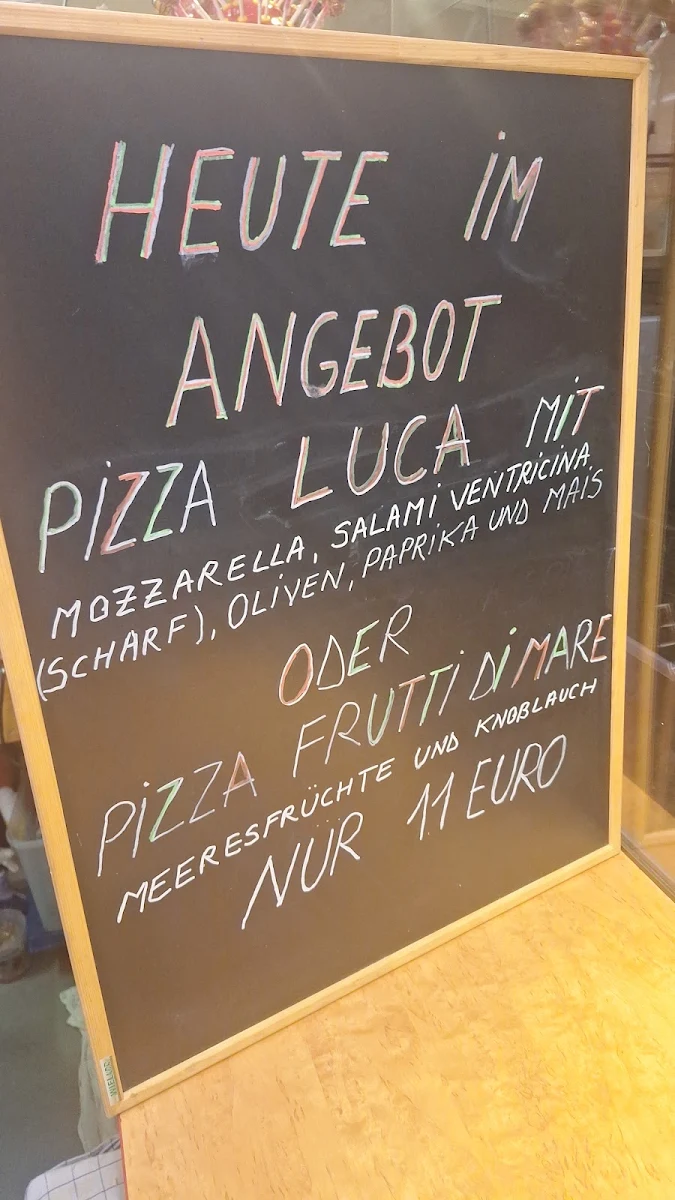 HEUTE iM
ANGEBOT
PiZZA LUCA MiT
MOZZARELLA, SALAMi VENTRICINA
(SCHARF), OLiVEN, PAPRiKA UND MAiS
ODER
PiZZA FRUTTi Di MARE
MEERESFRÜCHTE UND KNOBLAUCH
NUR 11 EURO